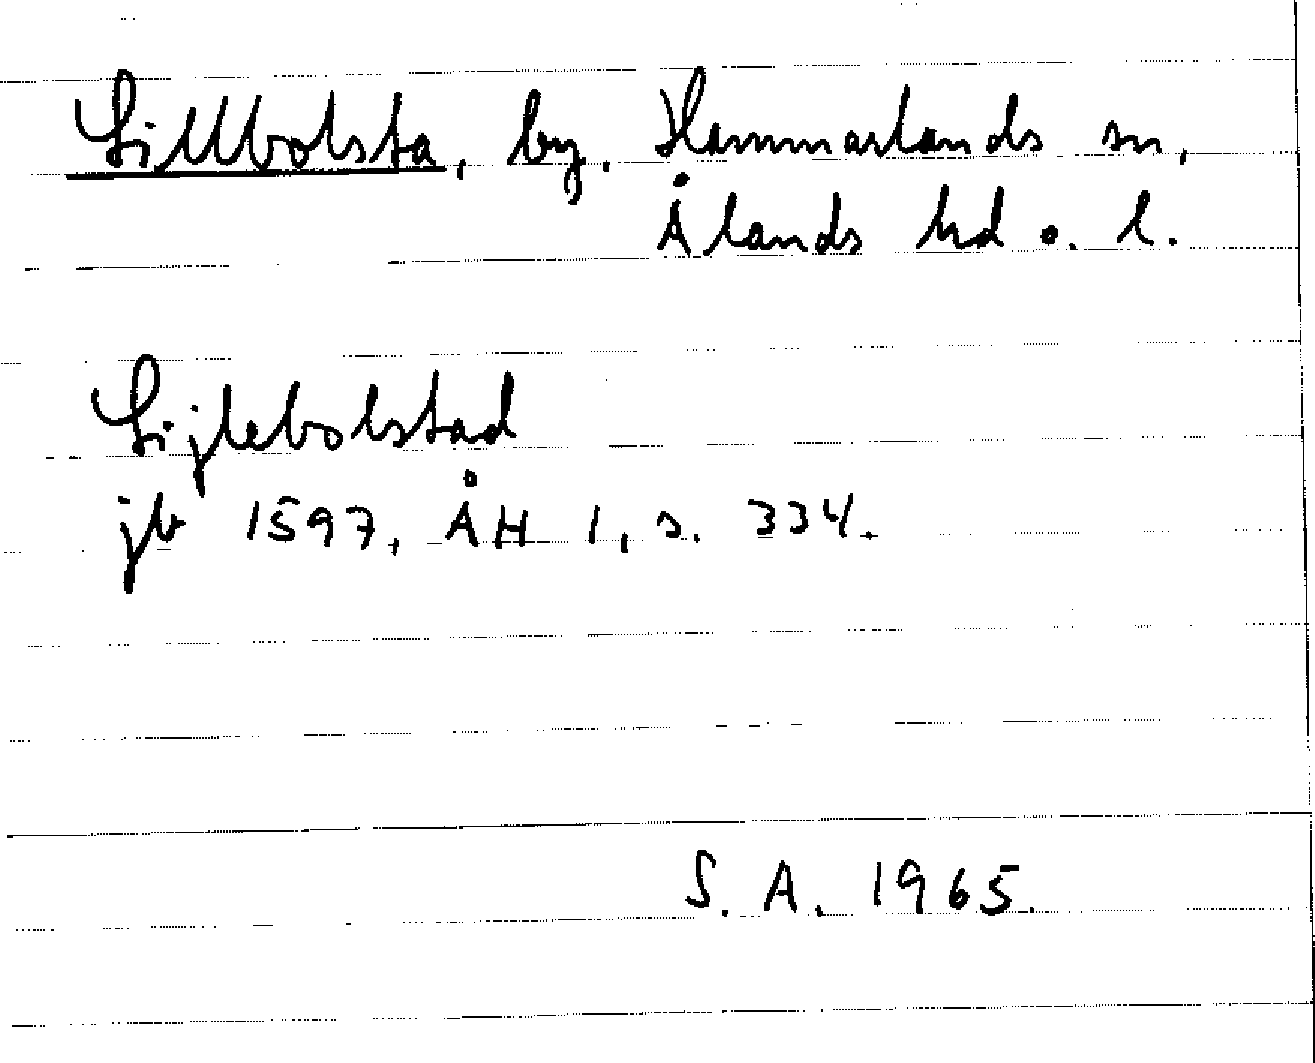 Lillbolsta, by. Hammarlands sn,
Ålands hd o. l.
Lijlebolstad
jb 1597, ÅH 1, s. 334.
S. A. 1965.